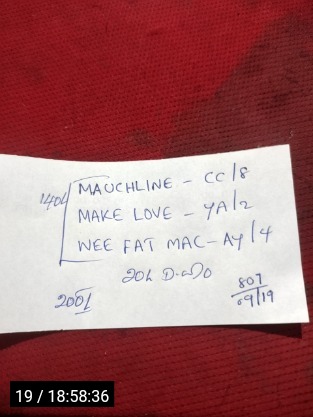 MAUCHLINE - CC/8
140L MAKE LOVE - YA/2
WEE FAT MAC - AY/4
20L
200/
807
09/19
19 / 18:58:36